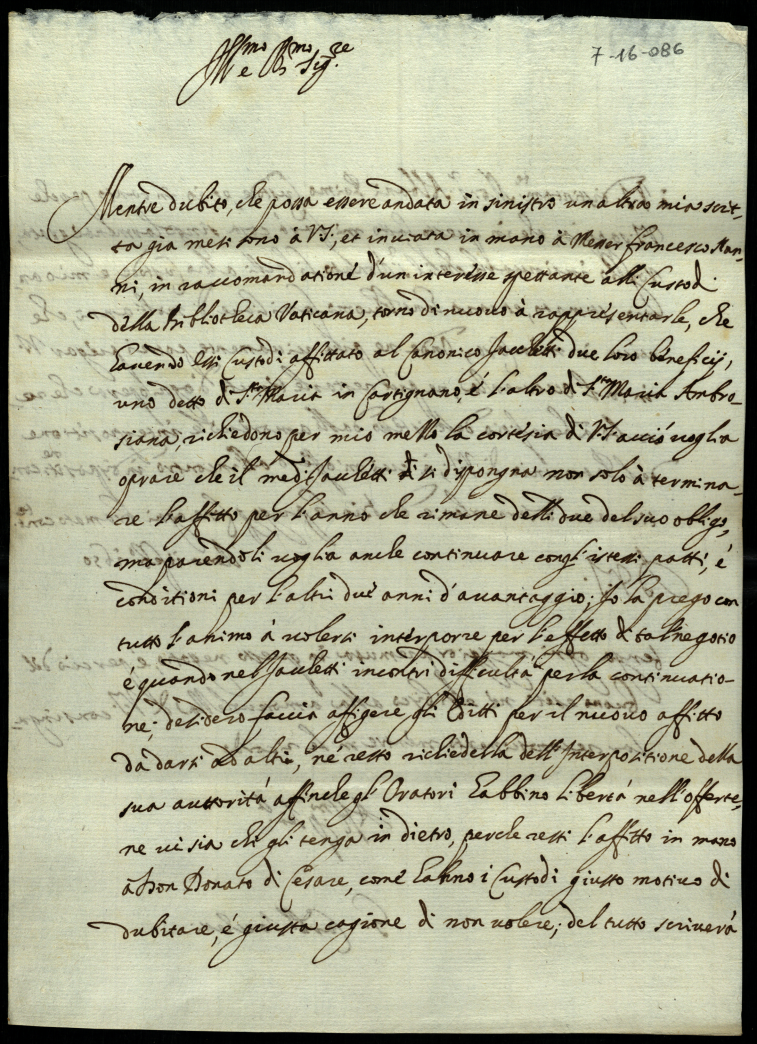 7-16-086
Ill.mo e R.mo Sig.re
Mentre dubito, che possa essere andata in sinistro un altra mia scrit=
ta già mesi sono à VS, et inviata in mano à Messer Francesco Nan=
ni, in raccomandatione d'un interesse spettante alli Custodi
della Biblioteca Vaticana, torno di nuovo à rappresentarle, che
havendo essi Custodi affittato al Canonico Jacoletti due loro beneficij,
uno detto di S.ta Maria in Cartignano, é l'altro di S.ta Maria Ambro-
siana, richiedono per mio mezzo la cortesia di VS acciò voglia
oprare che il med. Jacoletti si dispongna non solo à termina-
re l'affitto per l'anno che rimane delli due del suo obligo,
ma parendoli voglia anche continuare con gl'istessi patti, é
conditioni per l'altri due anni d'avantaggio; Io la prego con
tutto l'animo à volersi interporre per l'effetto di tal negotio
é quando nel Jacoletti incontri difficultà per la continuatio-
ne; desidero faccia affigere gli Editti per il nuovo affitto
da darsi ad altri, né resto richiederla dell'Interpositione della
sua auttorità affinche gl'Oratori habbino libertà nell'offerte,
ne vi sia chi gli tenga in dietro, perche resti l'affitto in mano
a Don Donato di Cesare, comé hanno i Custodi giusto motivo di
dubitare, é giusta cagione di non volere; del tutto scriverà